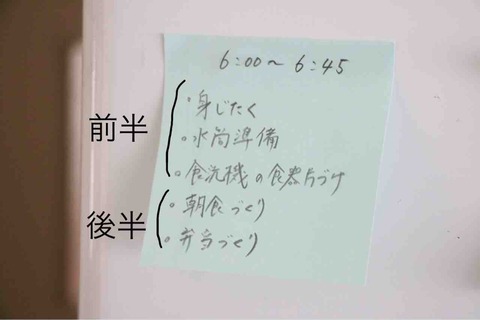 6:00〜6:45
・身じたく
・水筒準備
・食洗機の食器片づけ
前半
・朝食づくり
・弁当づくり
後半